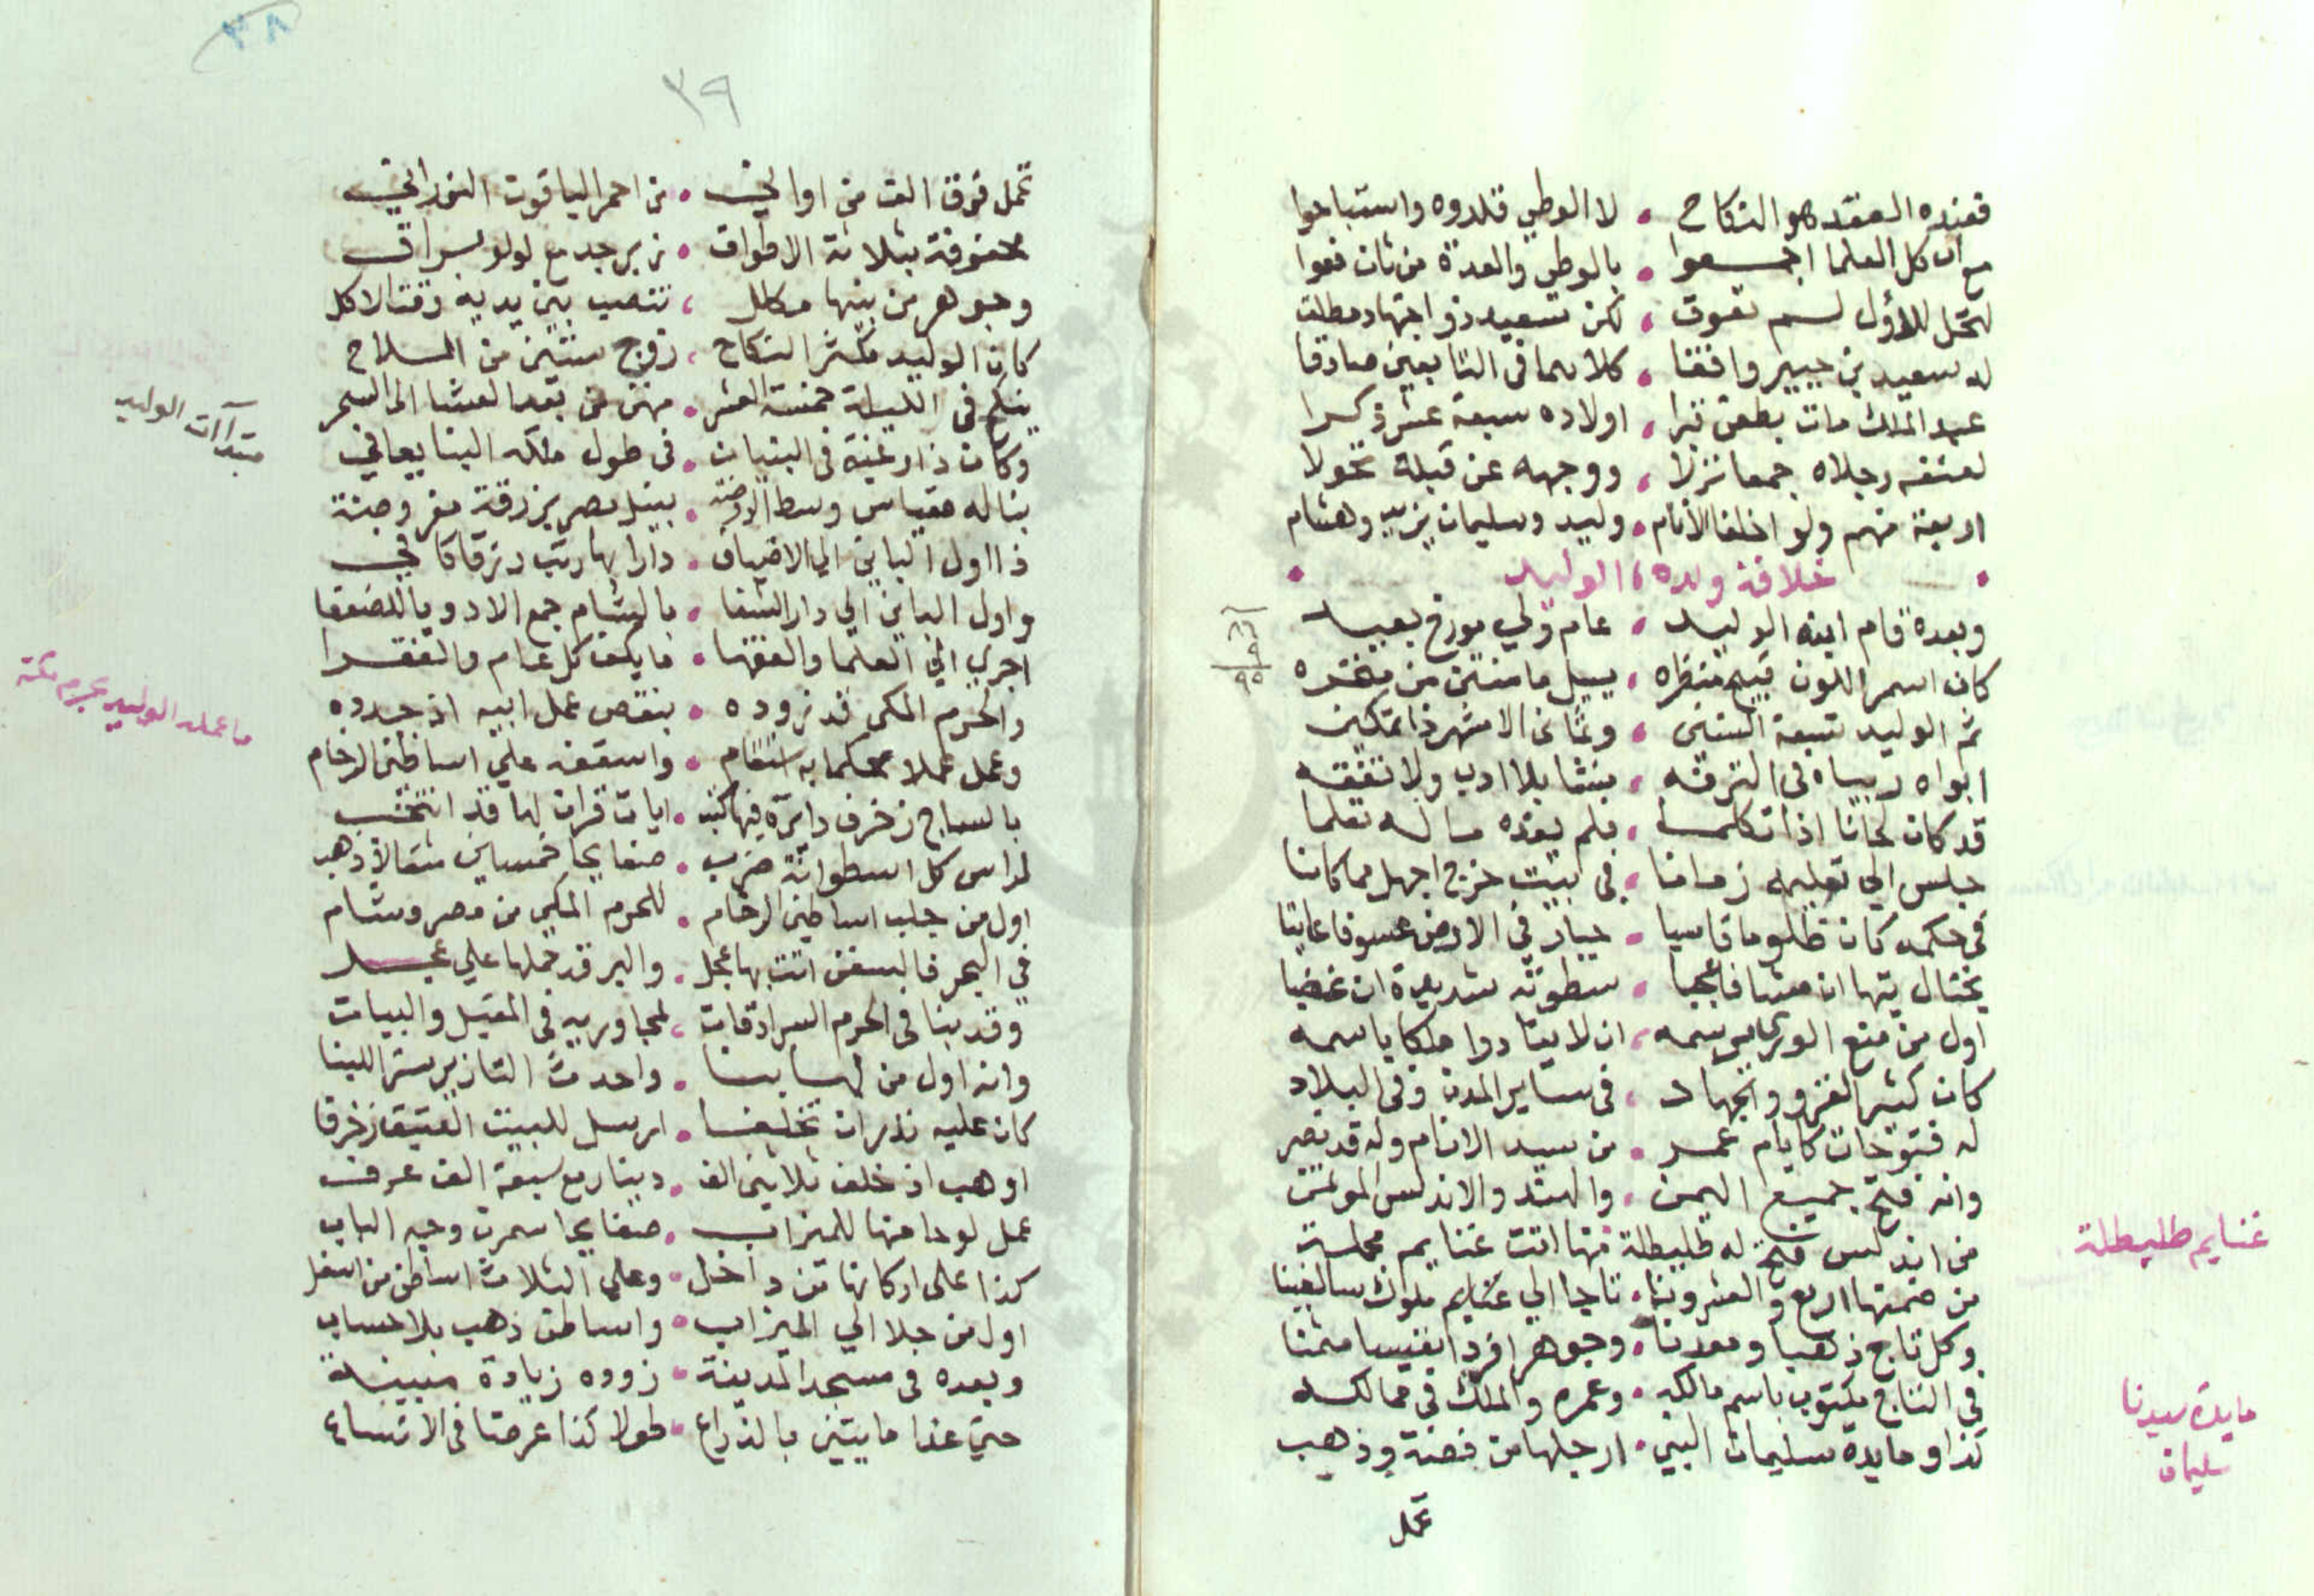 فعنده العقد هو النكاح • لا الوطي قلدوه واستباحوا
مع ان كل العلما اجمعوا • بالوطي والعدة من ثان فعوا
لتحل للاول لسم تعوق • لكن سعيد ذو اجتهاد مطلق
له سعيد بن جبير وافقا • كلاهما في التابعين صادقا
عبد الملك مات بطعن تبرا • اولاده سبعة عشر ذكرا
لعنقه رجلاه جمعا نزلا • ووجهه عن قبلة تحولا
اربعة منهم ولو اخلفا الأنام • وليد وسليمان يزيد وهشام
• خلافة ولده الوليد •
وبعده قام ابنه الوليد • عام ولي يورخ بعيد
كان اسمر اللون قبيح منظره • يسيل ما منتن من منخره
ثم الوليد تسعة السنين • وثماني الاشهر ذا تمكين
ابواه ربياه في الترفه • بنشا بلا ادب ولا تفقه
قد كان لحانا اذا تكلما • فلم يفده ما له تعلما
جلس الي تعليمه زمانا • في بيت خرج اجهل مما كانا
في حكمه كان ظلوما قاسيا • جبار في الارض عسوفا عاتيا
يختال تيها ان مشا فاعجبا • سطوته شديدة ان غضبا
اول من منع الوري برسمه • ان لا ينادوا ملكا باسمه
كان كثير الغزو والجهاد • في ساير المدن وفي البلاد
له فتوحات كايام عمر • من سيد الانام وله قد نصر
وانه فتح جميع اليمن • والهند والاندلس المولمن
من اندلس فتح له طليطلة • منها اتت غنايم محملة
من ضمنها اربع والعشرونا • تاجا الي غنايم ملوك سالفينا
وكل تاج ذهبا ومعدنا • وجوهرا فردا نفيسا مثمنا
في التاج مكتوب باسم مالكه • وعمره والملك في ممالكه
كذا و مايدة سليمان النبي • ارجلها من فضة وذهب
تحمل
غنايم طليطلة
مايدة سيدنا
سليمان
٣٩
٣٨
تحمل فوق الف من اواني • من احمر الياقوت النوراني
محفوفة بثلاثة الاطواق • زبرجد مع لولو براق
وجوهر من بينها مكلل • تنصب بين يديه وقتا لاكل
كان الوليد مكثر النكاح • زوج ستين من الملاح
ينكح في الليلة خمسة العشر • مهن من بعد العشا الى السحر
وكان ذا رغبة في البنيان • في طول ملكه البنا يعاني
بنا له مقياس وسط الروضة • بنيل مصر بزرقة مفروضة
ذا اول الباني الي الاضياف • دارا بها رتب رزقا كافي
واول الباني الي دار الشفا • بالشام جمع الادويا للضعفا
اجري الي العلما والفقها • ما يكف كل عام والفقرا
والحرم المكي قد زوده • بنقص عمل ابيه اذ جدده
وعمل عملا محكما به استقام • واسقفه علي اساطين الرخام
بالساج زخرف دايرة فيها كتب • ايات قران لها قد انتخب
لراس كل اسطوانة ضرب • صفايحا خمسين مثقالا ذهب
اول من جلب اساطين الرخام • للحرم المكي من مصر وشام
في البحر فالسفن اتت بها عجل • والبر قد حملها علي عجل
وقد بنا في الحرم السرادقات • لمجاوريه في المقيل والبيات
وانه اول من لها بنا • واحدث التازير ستر اللبنا
كان عليه نذر ان تخلفا • ارسل للبيت العتيق زخرفا
اوهب اذ خلف ثلاثين الف • دينار مع سبعة الف عرف
عمل لوحا منها للميزاب • صفايحا سمرت وجه الباب
كذا على اركانها من داخل • وعلى الثلاث اساطن من اسفل
اول من جلا الي الميزاب • واساطن ذهب بلا حساب
وبعده في مسجد المدينة • زوده زيادة مبينة
حتي غدا مايتين بالذراع • طولا كذا عرضا في الاتساع
مبتدآت الوليد
ما عمله الوليد بحرم مكة